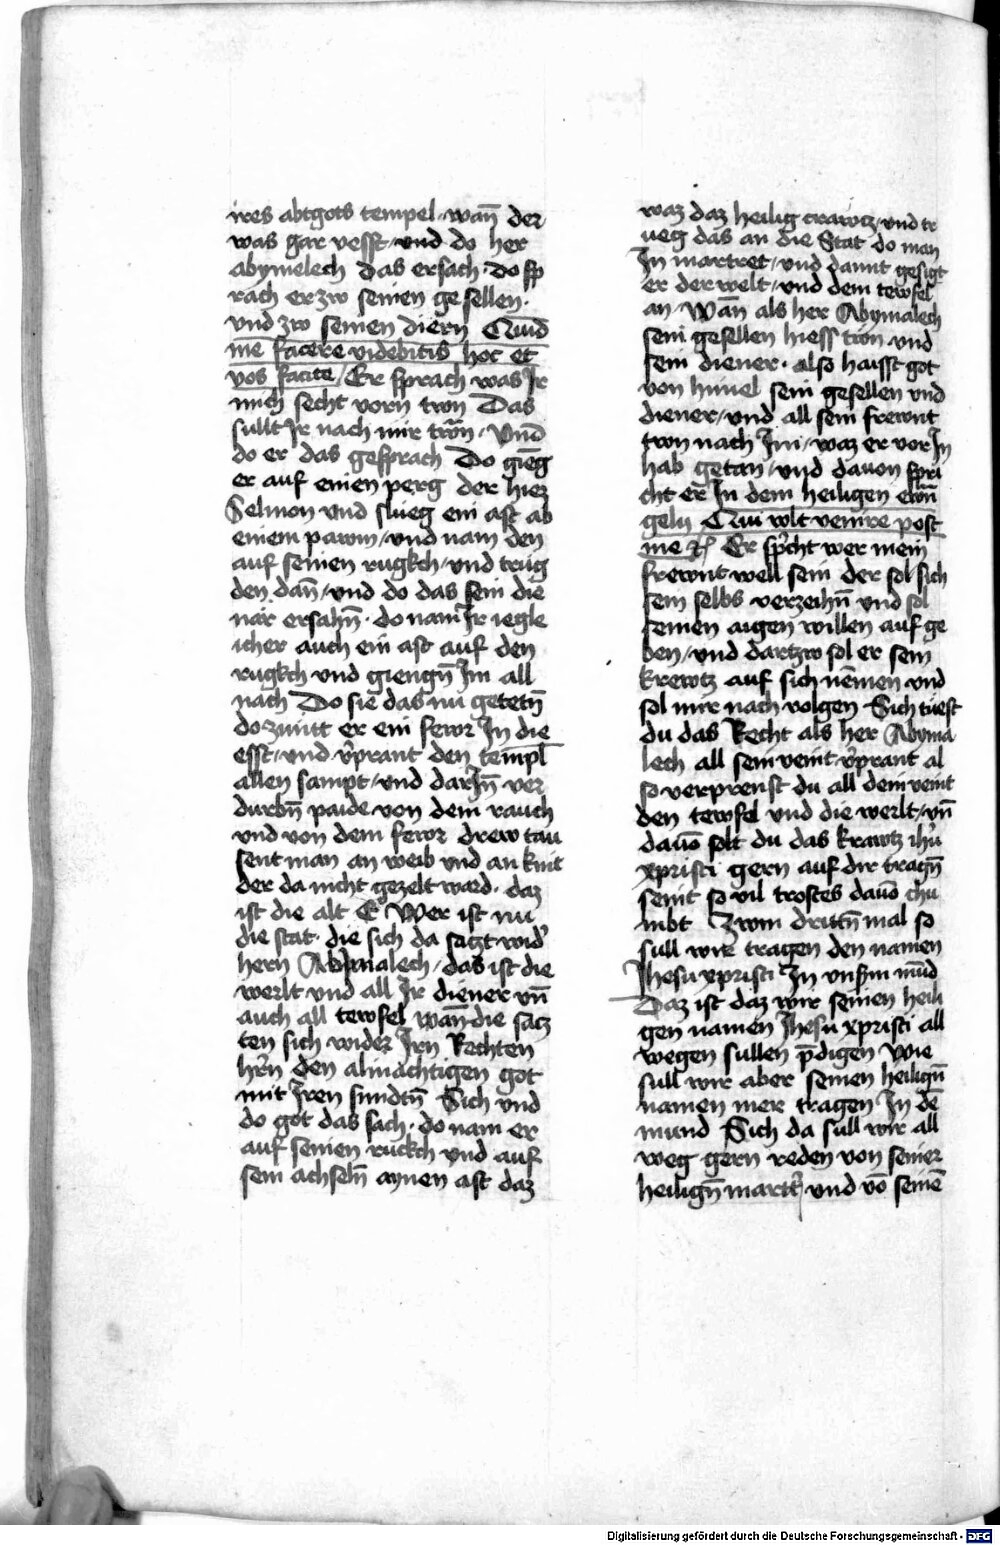 ires abtgots tempel · wañ der
was gar vesst / und do her
abymelech das ersach · do sp
rach er zw seinen ge sellen ·
vnd zw seinen diern Quid
me facere videbitis hoc et
vos facite / Er sprach was Ir
mich secht vorn twn Das
sullt Ir nach mir twn / Vnd
do er das gesprach Do gieng
er auf einen perg der hiez
Selmon vnd slueg ein ast ab
einem pawm / vnd nam den
auf seinen rugkch / vnd trug
den dañ / vnd do das sein die
när ersahñ · do nam Ir iegle
icher auch ein ast auf den
rugkch vnd giengñ Im all
nach Do sie das nu getetñ
do zuntt er ein fewr In die
esst / vnd v̉prant den templ
allen sampt / vnd dar Iñ ver
durbñ paide von dem rauch
vnd von dem fewr drew tau
sent man an weib vnd an kint
der da nicht gezelt ward · daz
ist die alt E Wer ist nu
die stat · die sich da saczt wid̉
hern Abymalech / das ist die
werlt vnd all Ir diener vñ
auch all tewfel wañ die sacz
ten sich wider Irn Rechten
hr̉n den almachtigen got
mit Iren sundtñ Sich vnd
do got das sach · do nam er
auf seinen ruckch vnd auf
sein achselñ aynen ast daz
waz daz heilig crawtz / vnd tr
ueg das an die Stat do man
In martret / vnd damit gesigt
er der welt / vnd dem tewfel
an / Wañ als her Abymalech
sein gesellen hiess twn vnd
sein diener · also haisst got
von himel sein gesellen vnd
diener / vnd all sein frewnt
twn nach Im / waz er vor In
hab getan / vnd davon spri
cht er In dem heiligen ewñ
gely Qui vult venire post
me &c Er sp̉cht wer mein
frewnt well sein der sol sich
sein selbs verzeihñ vnd sol
seinen aigen willen auf ge
ben / vnd dartzw sol er sein
krewtz auf sich nemen vnd
sol mir nach volgen Sich tuest
du das Recht als her Abyma
lech all sein veint v̉prant al
so verprenst du all dein veint
den tewfel vnd die werlt / vñ
davō solt du das krawtz ihũ
xpristi gern auf dir tragñ
seint so vil trostes davō chu
mbt Zwm drittñ mal so
sull wir tragen den namen
Jhesu xpristi In vnsm mūd
Daz ist daz wir seinen heili
gen namen Jhesu xpristi all
wegen sullen p̄digen Wie
sull wir aber seinen heiligñ
namen mer tragen In dē
mund Sich da sull wir all
weg gern reden von seiner
heiligñ martr̉ vnd vō seinē
Digitalisierung gefördert durch die Deutsche Forschungsgemeinschaft - DFG